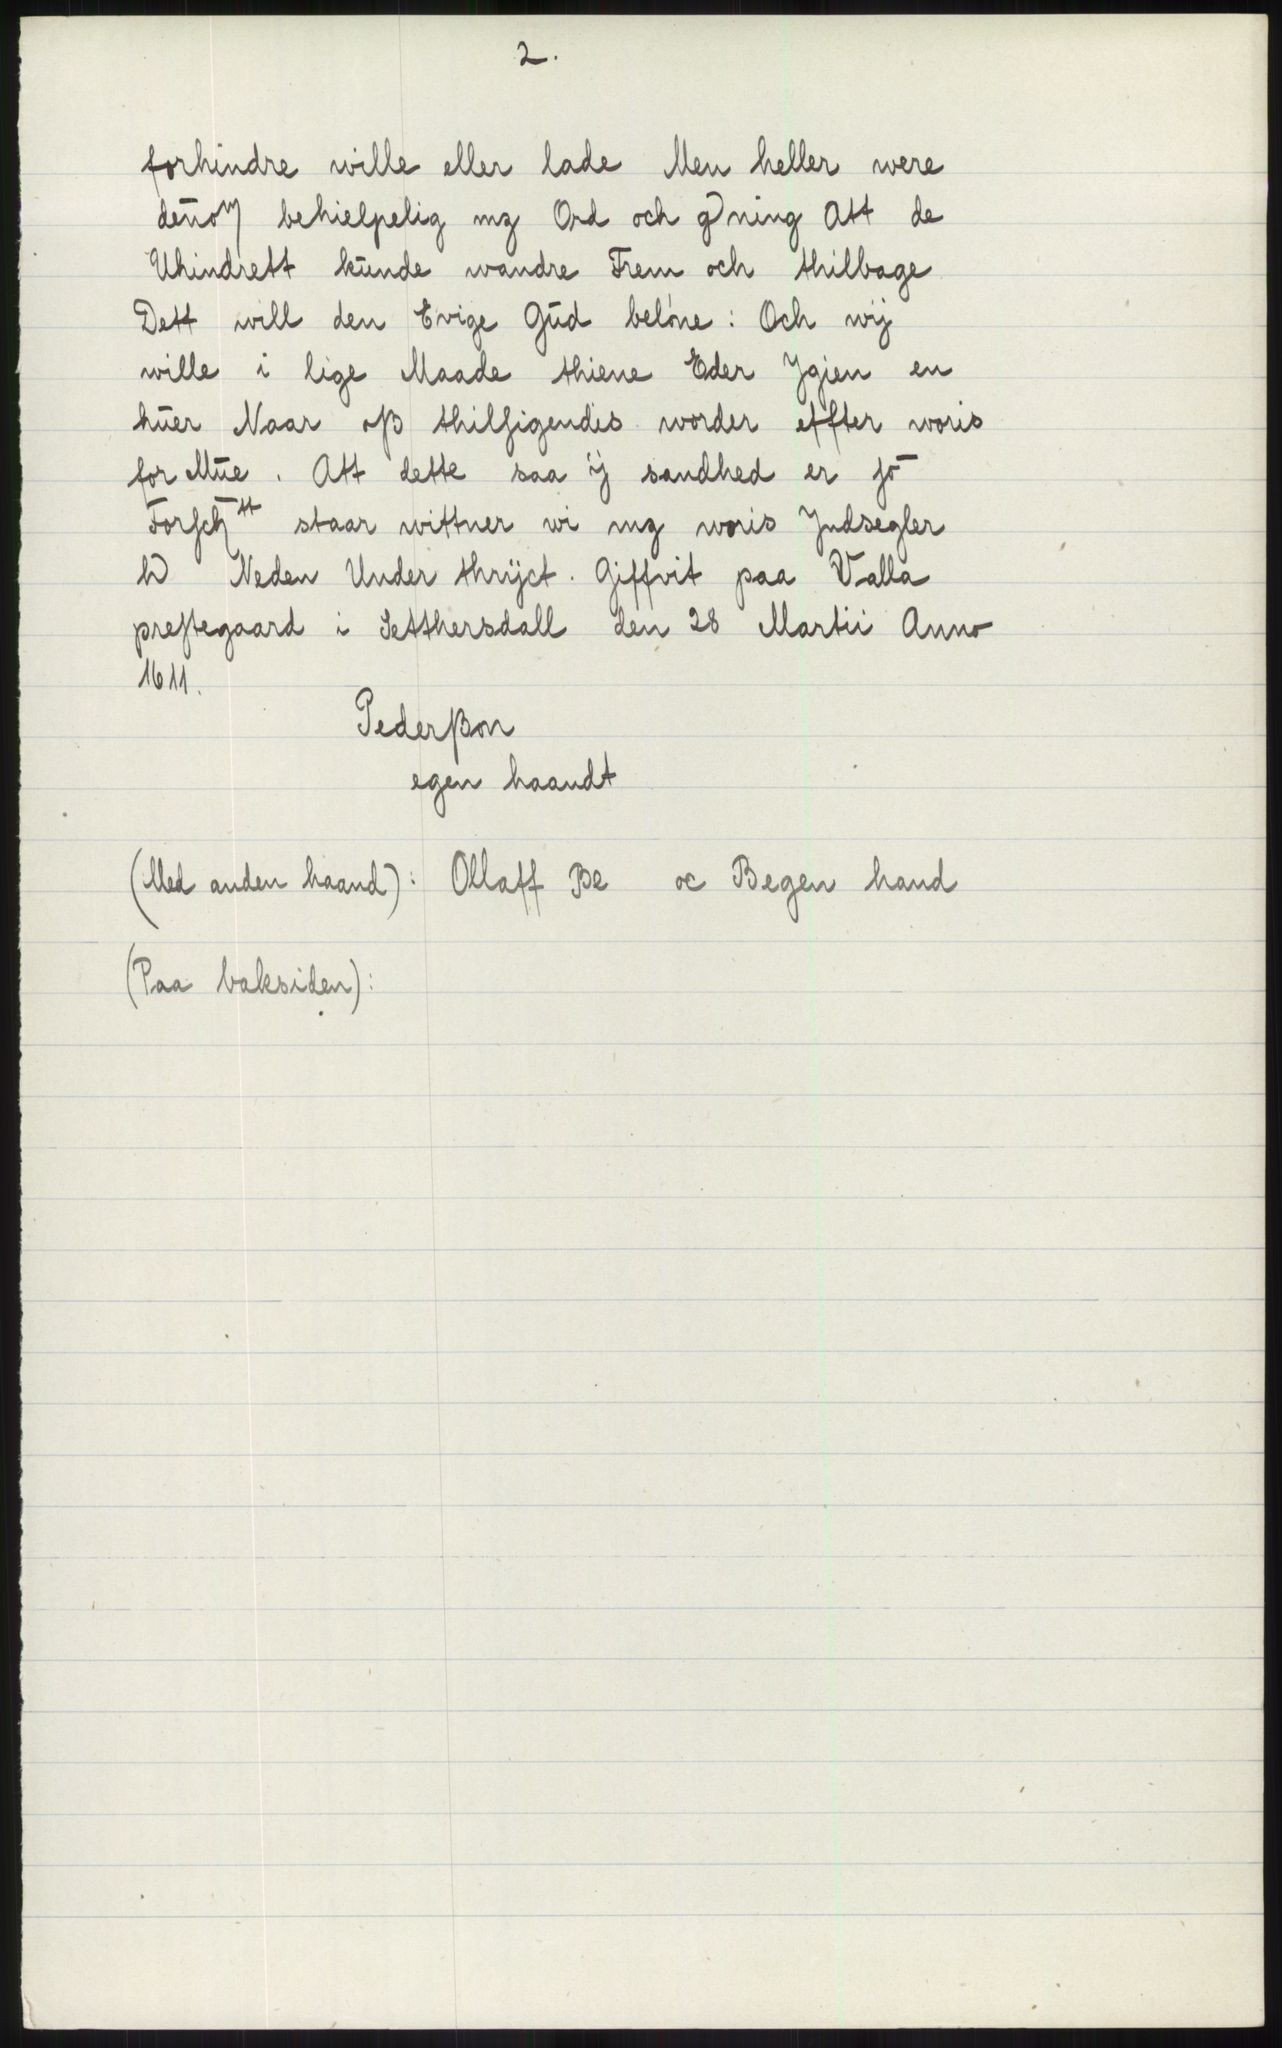 2.
forhindre wille eller lade Men heller were
behielpelig mz Ord och gning Att de
Uhindrett kŭnde wandre Frem och thilbage
Dett will den Evige Gŭd beløne: Och wij
wille i lige Maade thiene Eder Ygien en
hŭer Naar oß thilsigendis worder effter woris
for Mŭe. Att dette saa ij sandhed er
staar wittner wi mz woris Jndsegler
Neden Under thrijct. Giffvit paa Valla
prestegaard i Setthersdall den 28 Martii Anno
1611.
Pederßon
egen haandt
(Med anden haand): Ollaff ße oc Begen hand
(Paa baksiden):